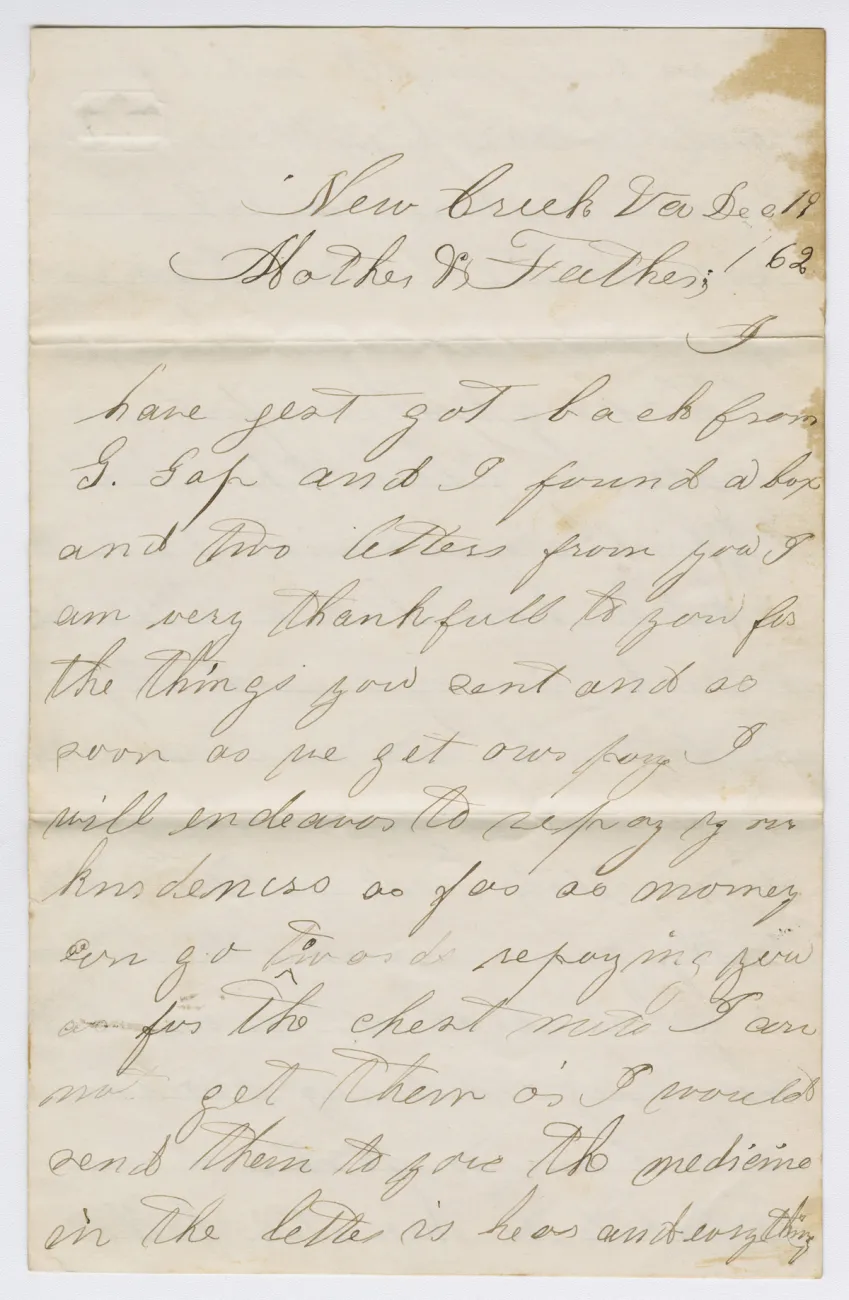 New Creek Va Dec 19
Mother & Father; / 62
I
have jest got back from
G. Gap and I found a box
and two letters from you I
am very thankfull to you for
the things you sent and as
soon as we get our pay I
will endeavor to repay your
kindeness as far as money
can go towards repaying you
as for the chest nuts I can
not get them or I would
send them to you the medicine
in the letter is hear and every thing